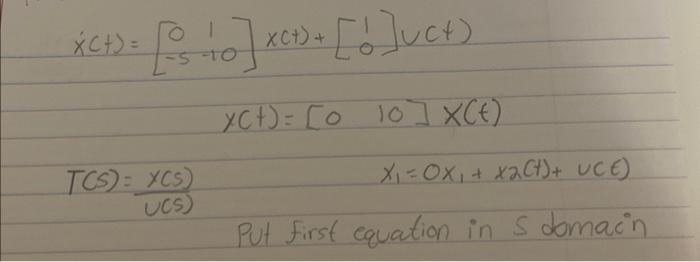 ẋ(t) = [0 1; -5 -10] x(t) + [1; 0] u(t)
y(t) = [0 10] x(t)
T(s) = Y(s)/U(s)
x₁ = 0x₁ + x2(t) + u(t)
Put first equation in s domain